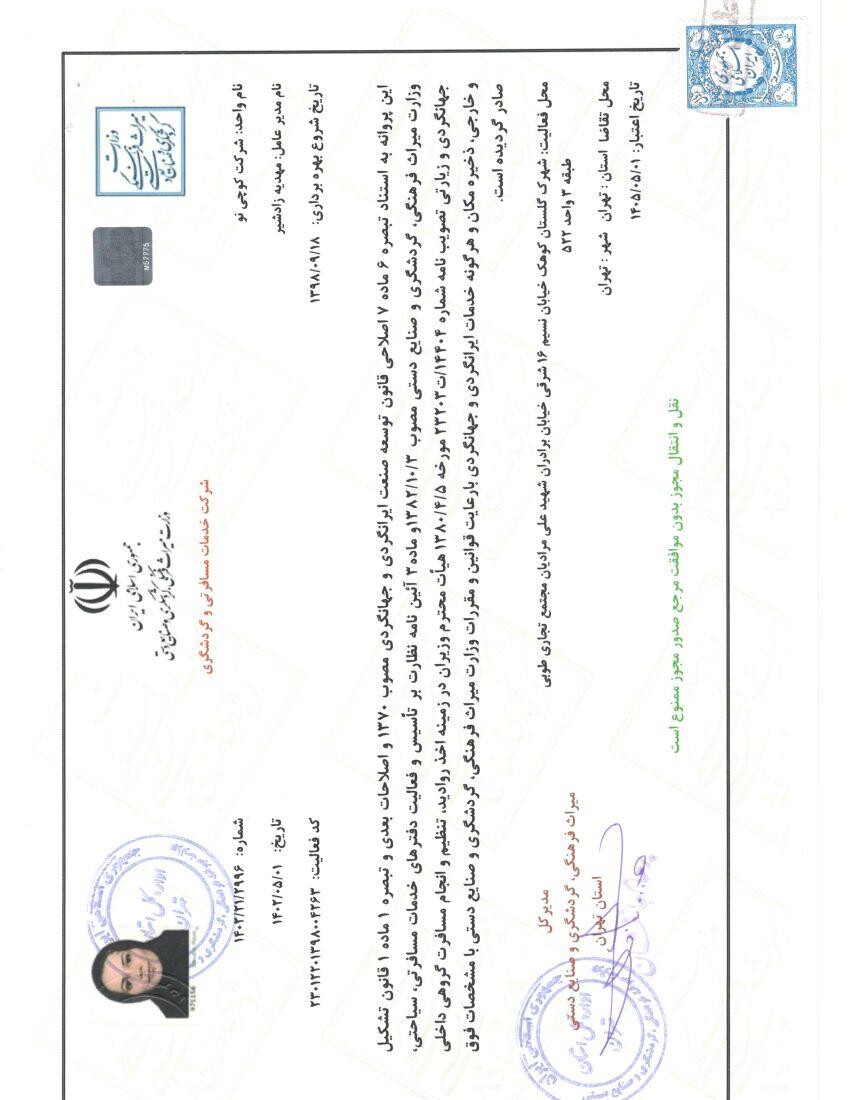 جمهوری اسلامی ایران
وزارت میراث فرهنگی، گردشگری و صنایع دستی
شرکت خدمات مسافرتی و گردشگری
وزارت
میراث فرهنگی
گردشگری و صنایع دستی
N57775
نام واحد: شرکت کوچی نو
شماره: ۱۴۰۲/۲۱/۲۹۹۶
نام مدیر عامل: مهدیه زادشیر
تاریخ: ۱۴۰۲/۰۵/۰۱
تاریخ شروع بهره برداری: ۱۳۹۸/۰۹/۱۸
کد فعالیت: ۲۳۰۱۲۲۰۱۳۹۸۰۰۴۲۶۳
این پروانه به استناد تبصره ۶ ماده ۷ اصلاحی قانون توسعه صنعت ایرانگردی و جهانگردی مصوب ۱۳۷۰ و اصلاحات بعدی و تبصره ۱ ماده ۱ قانون تشکیل
وزارت میراث فرهنگی، گردشگری و صنایع دستی مصوب ۱۳۸۲/۱۰/۳و ماده ۳ آئین نامه نظارت بر تأسیس و فعالیت دفترهای خدمات مسافرتی، سیاحتی،
جهانگردی و زیارتی تصویب نامه شماره ۱۴۴۰۴/ت۲۳۲۰۳ مورخه ۱۳۸۰/۴/۵ هیأت محترم وزیران در زمینه اخذ روادید، تنظیم و انجام مسافرت گروهی داخلی
و خارجی، ذخیره مکان و هرگونه خدمات ایرانگردی و جهانگردی بارعایت قوانین و مقررات وزارت میراث فرهنگی، گردشگری و صنایع دستی با مشخصات فوق
صادر گردیده است.
محل فعالیت: شهرک گلستان کوهک خیابان نسیم ۱۶ شرقی خیابان برادران شهید علی مرادیان مجتمع تجاری طوبی
طبقه ۳ واحد ۵۲۲
محل تقاضا استان : تهران شهر : تهران
تاریخ اعتبار: ۱۴۰۵/۰۵/۰۱
مدیرکل
میراث فرهنگی، گردشگری و صنایع دستی
استان تهران
نقل و انتقال مجوز بدون موافقت مرجع صدور مجوز ممنوع است
جمهوری
اسلامی
ایران
071156